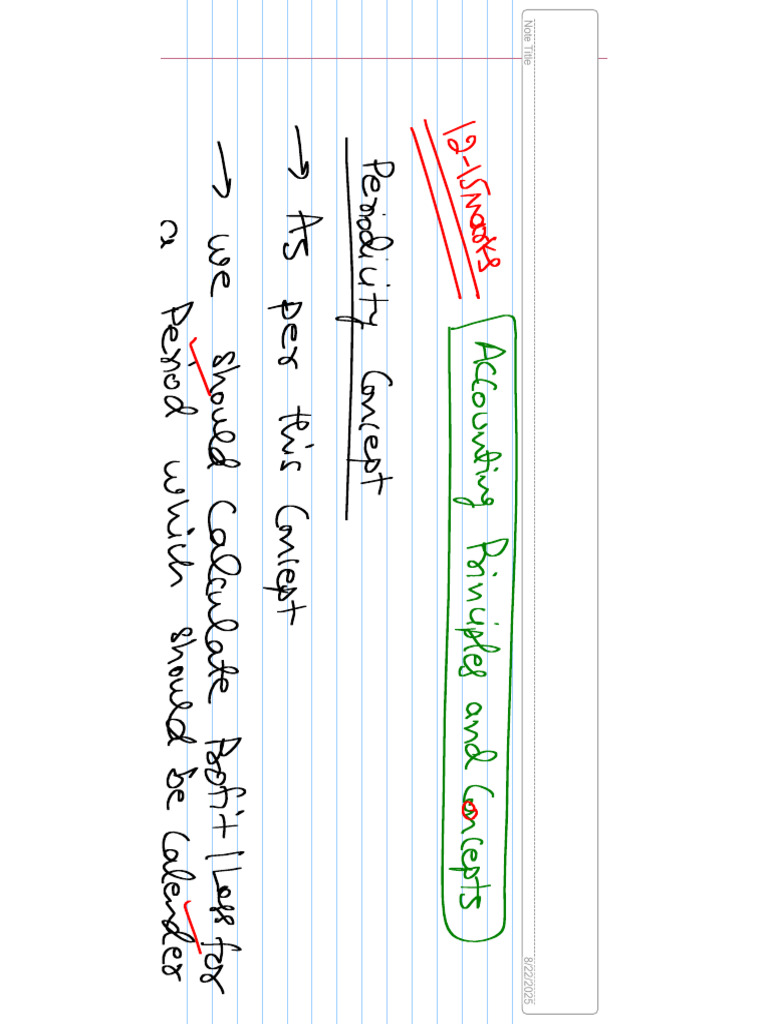 Note Title
8/22/2025
12-15 marks
Accounting Principles and Concepts
Periodicity Concept
→ As per this Concept
→ we should Calculate Profit | Loss for
a Period which should be Calender